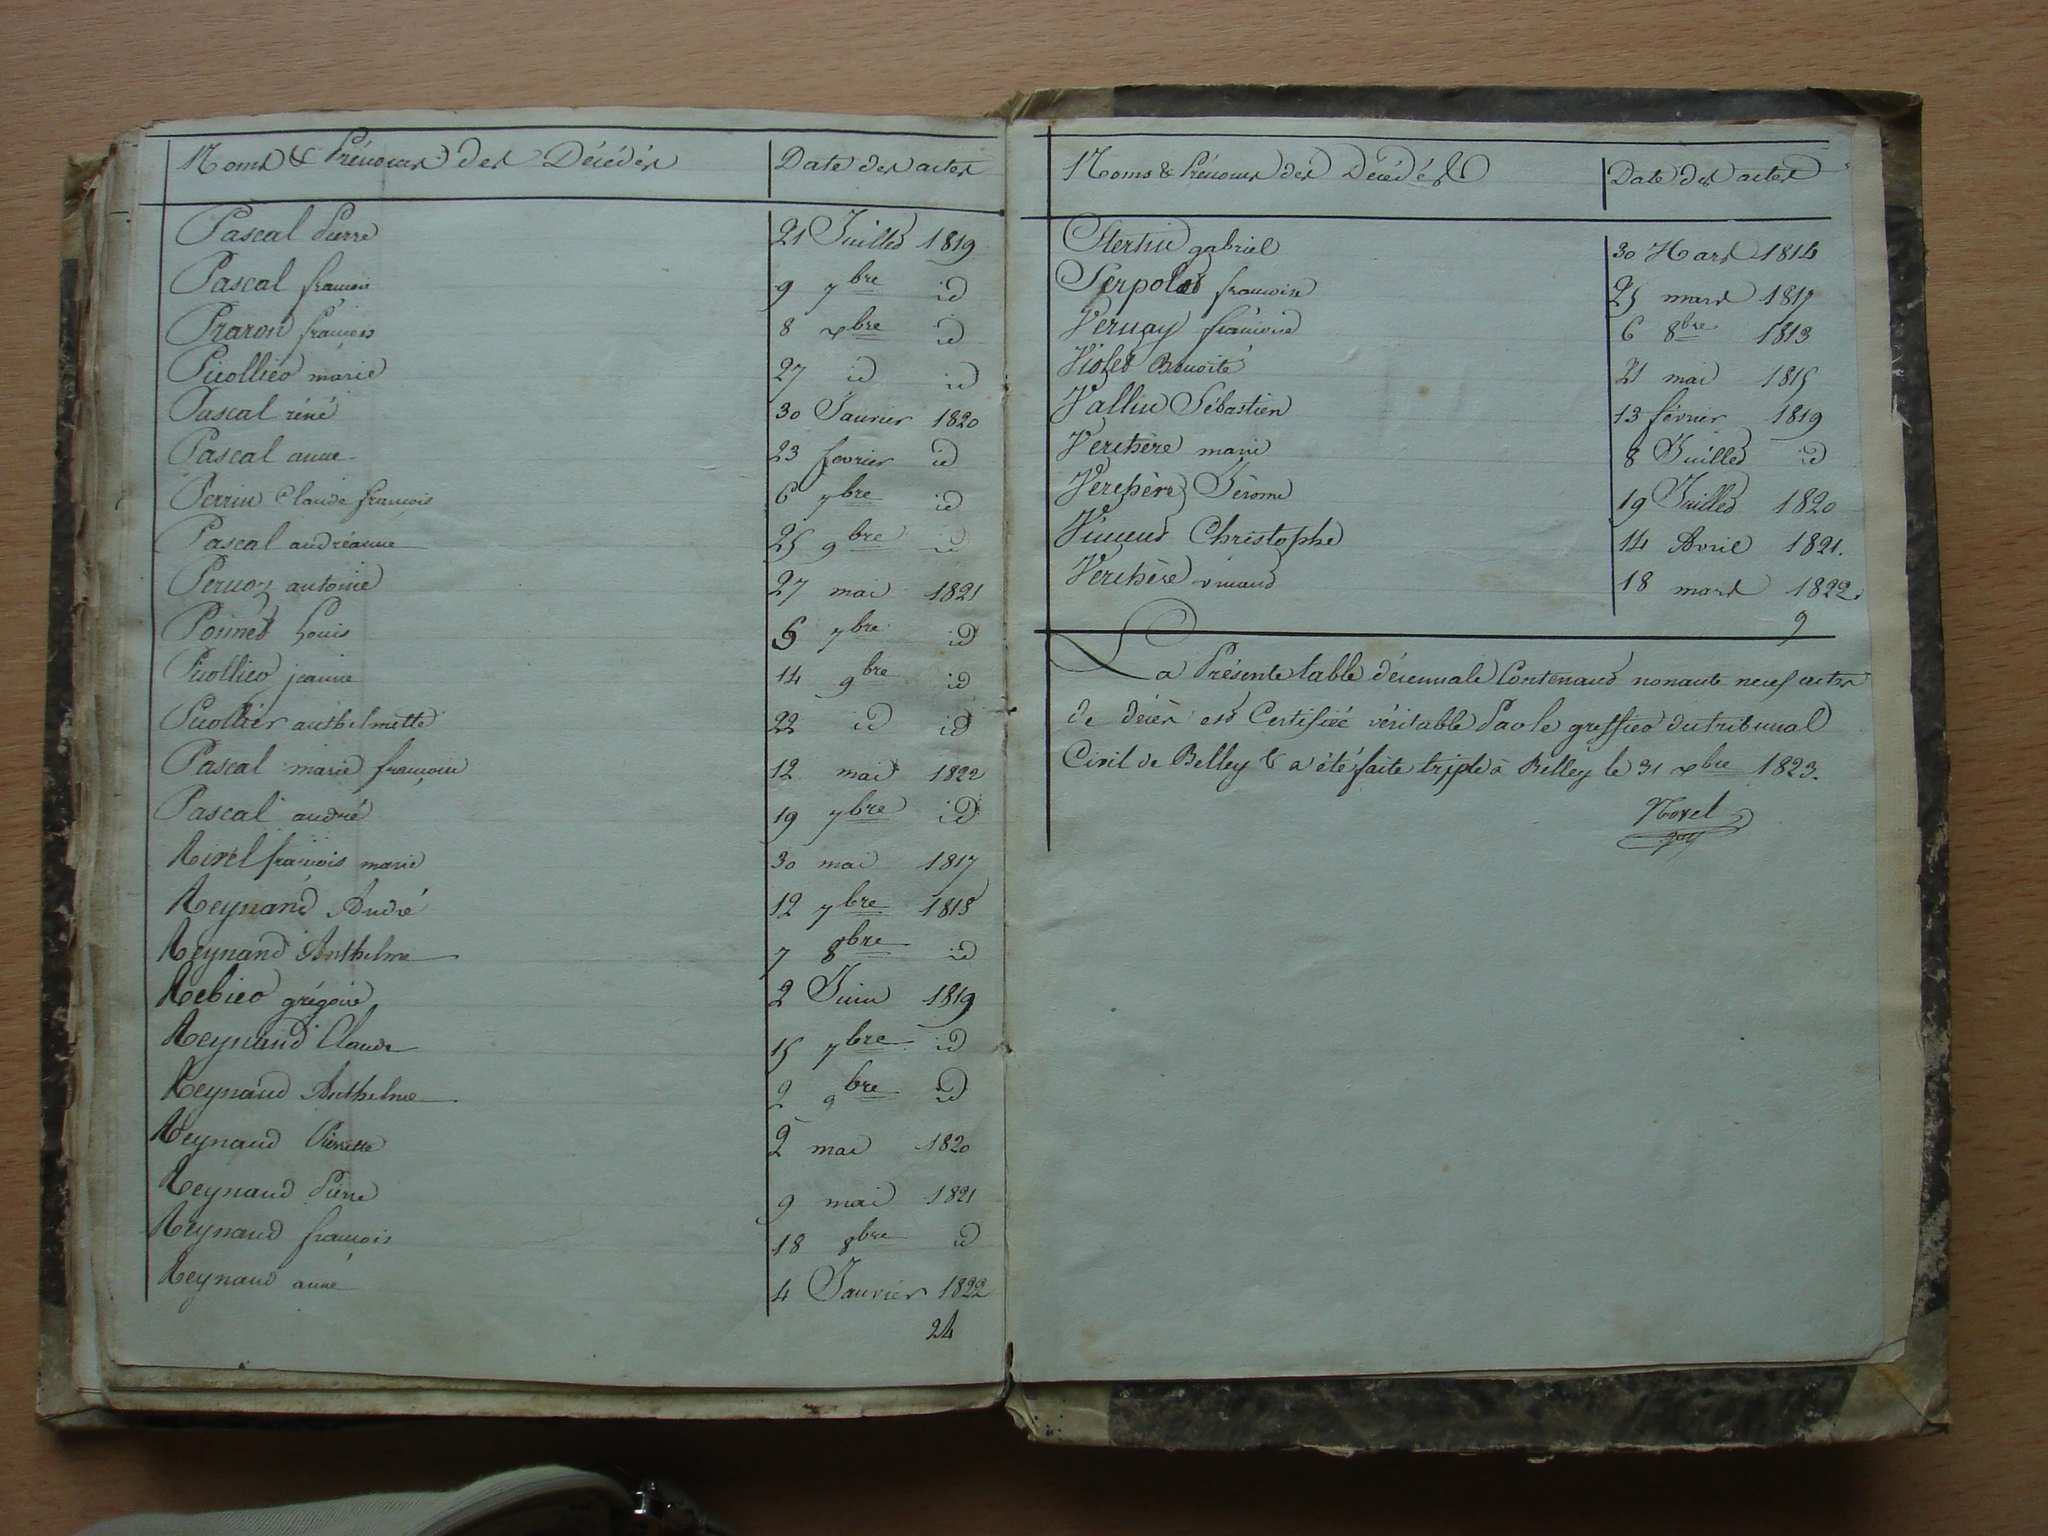 Noms & Prénoms des Décédés Date des actes
Pascal Pierre 21 Juillet 1819
Pascal francois 9 7bre id
Praron françois 8 xbre id
Picollier marie 27 id id
Pascal réné 30 Janvier 1820
Pascal anne 23 fevrier id
Perrin Claude francois 6 7bre id
Pascal andréanne 25 9bre id
Pernoz antoine 27 mai 1821
Ponnet Louis 6 7bre id
Picollier jeanne 14 9bre id
Picollier anthelmette 22 id id
Pascal marie françoise 12 mai 1822
Pascal andré 19 7bre id
Revel francois marie 30 mai 1817
Reynand André 12 7bre 1818
Reynand Anthelme 7 8bre id
Rebier grégoire 2 Juin 1819
Reynaud Claude 15 7bre id
Reynaud Anthelme 2 9bre id
Reynaud Pierrette 2 mai 1820
Reynaud Pierre 9 mai 1821
Reynaud francois 18 8bre id
Reynaud anne 4 Janvier 1822
24
Noms & Prénoms des Décédés Date des actes
gabriel 30 Mars 1814
Serpolet francoise 25 mars 1817
Vernay francoise 6 8bre 1813
Violet Benoite 21 mai 1815
Vallin Sébastien 13 février 1819
Verchère marie 8 Juillet id
Verchère Jérome 19 Juillet 1820
Vincent Christophe 14 Avril 1821.
Verchère vincent 18 mars 1822.
9
La Présente table décennale Contenant nonante neuf actes
de décès est Certifiée véritable Par le greffier du tribunal
Civil de Belley & a été faite triple à Belley le 31 xbre 1823.